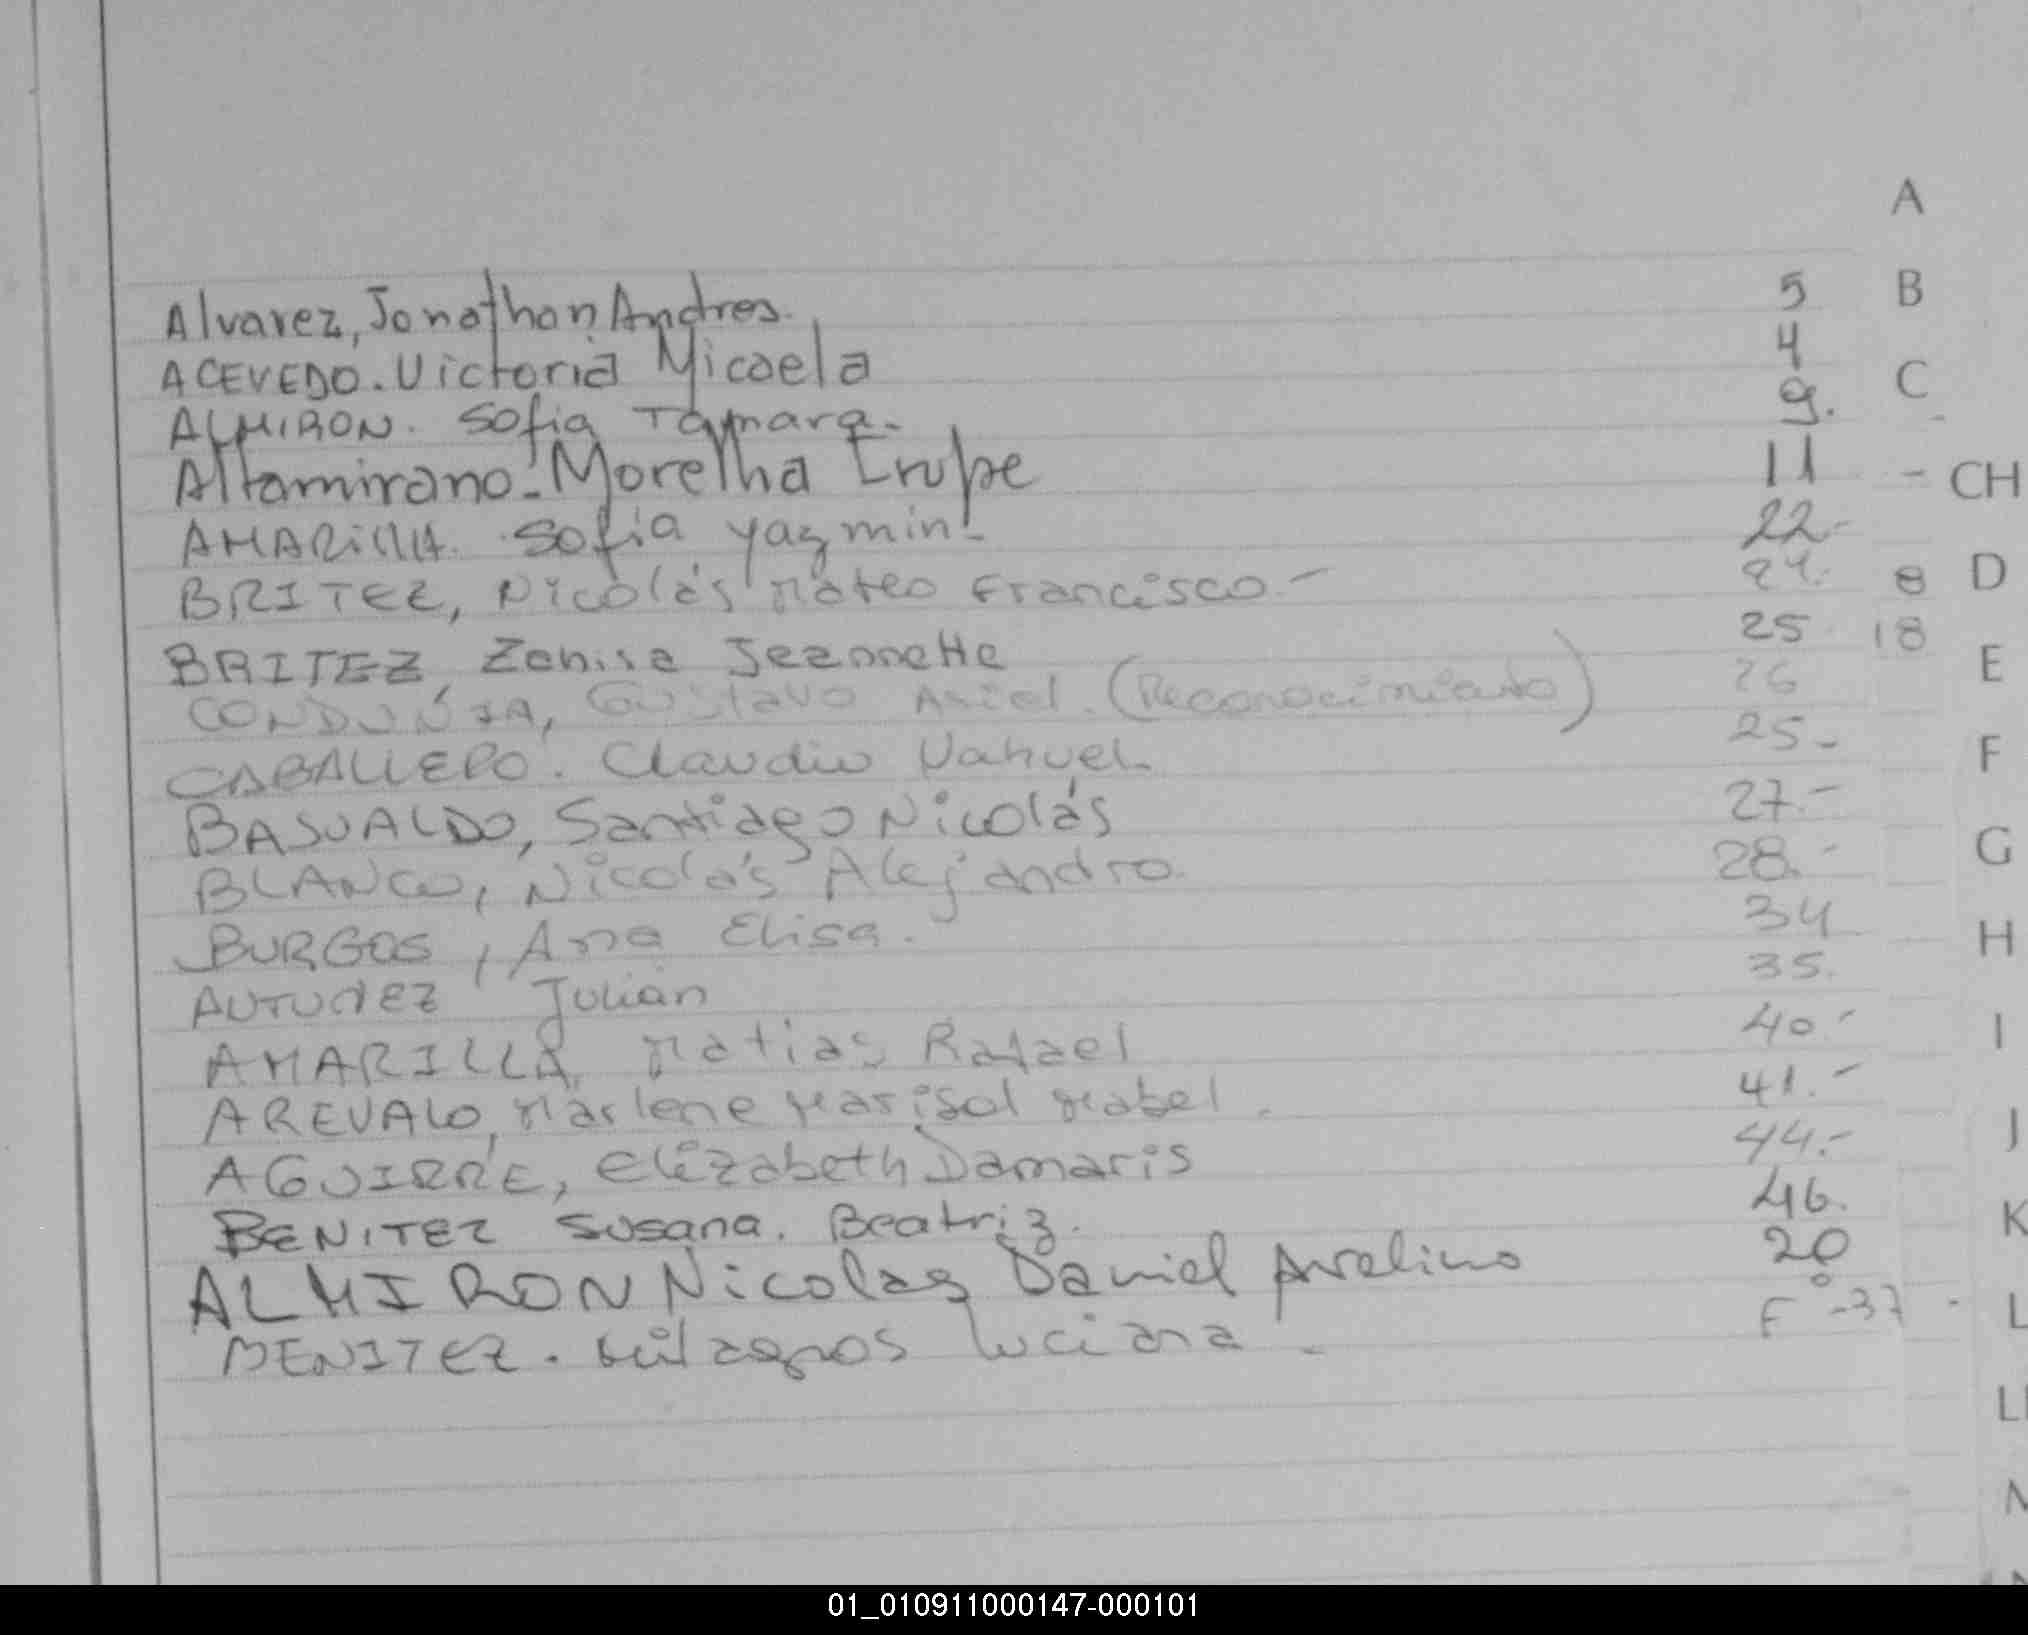 A
Alvarez, Jonathan Andres. 5 B
ACEVEDO. Victoria Micaela 4
ALMIRON. Sofia Tamara. 9. C
Altamirano - Morelha Erupe 11 - CH
AMARILLA. Sofia yazmin - 22 -
BRITEZ, Nicolás Mateo Francisco. - 24. 8 D
BRITEZ, Zenisa Jeannette 25 18
CONDUÑZA, Gustavo Ariel. (Reconocimiento) 26 E
CABALLERO. Claudio Nahuel. 25 - F
BASUALDO, Santiago Nicolás 27. -
BLANCO, Nicolás Alejandro. 28. - G
BURGOS, Ana Elisa. 34 H
AUTUNEZ Julián 35.
AMARILLA, Matias Rafael 40. - I
AREVALO, Marlene Marisol Mabel. 41. -
AGUIRRE, Elizabeth Damaris 44. - J
BENITEZ Susana. Beatriz. 46. K
ALMIRON Nicolas Daniel Avelino 20
BENITEZ. Milagros Luciana - F° - 37 - L
01_010911000147-000101